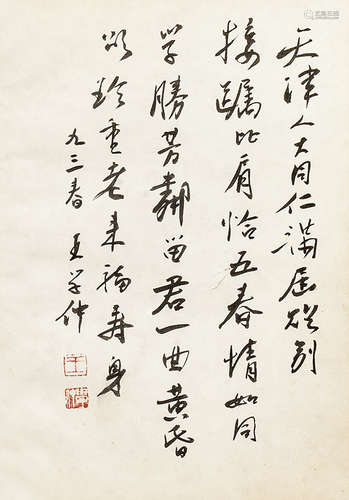 天津人大同仁满届颂别
接踵比肩恰五春情如同
学勝芳鄰留君一曲黄昏
颂珍重老来福寿身
九三春 王学仲